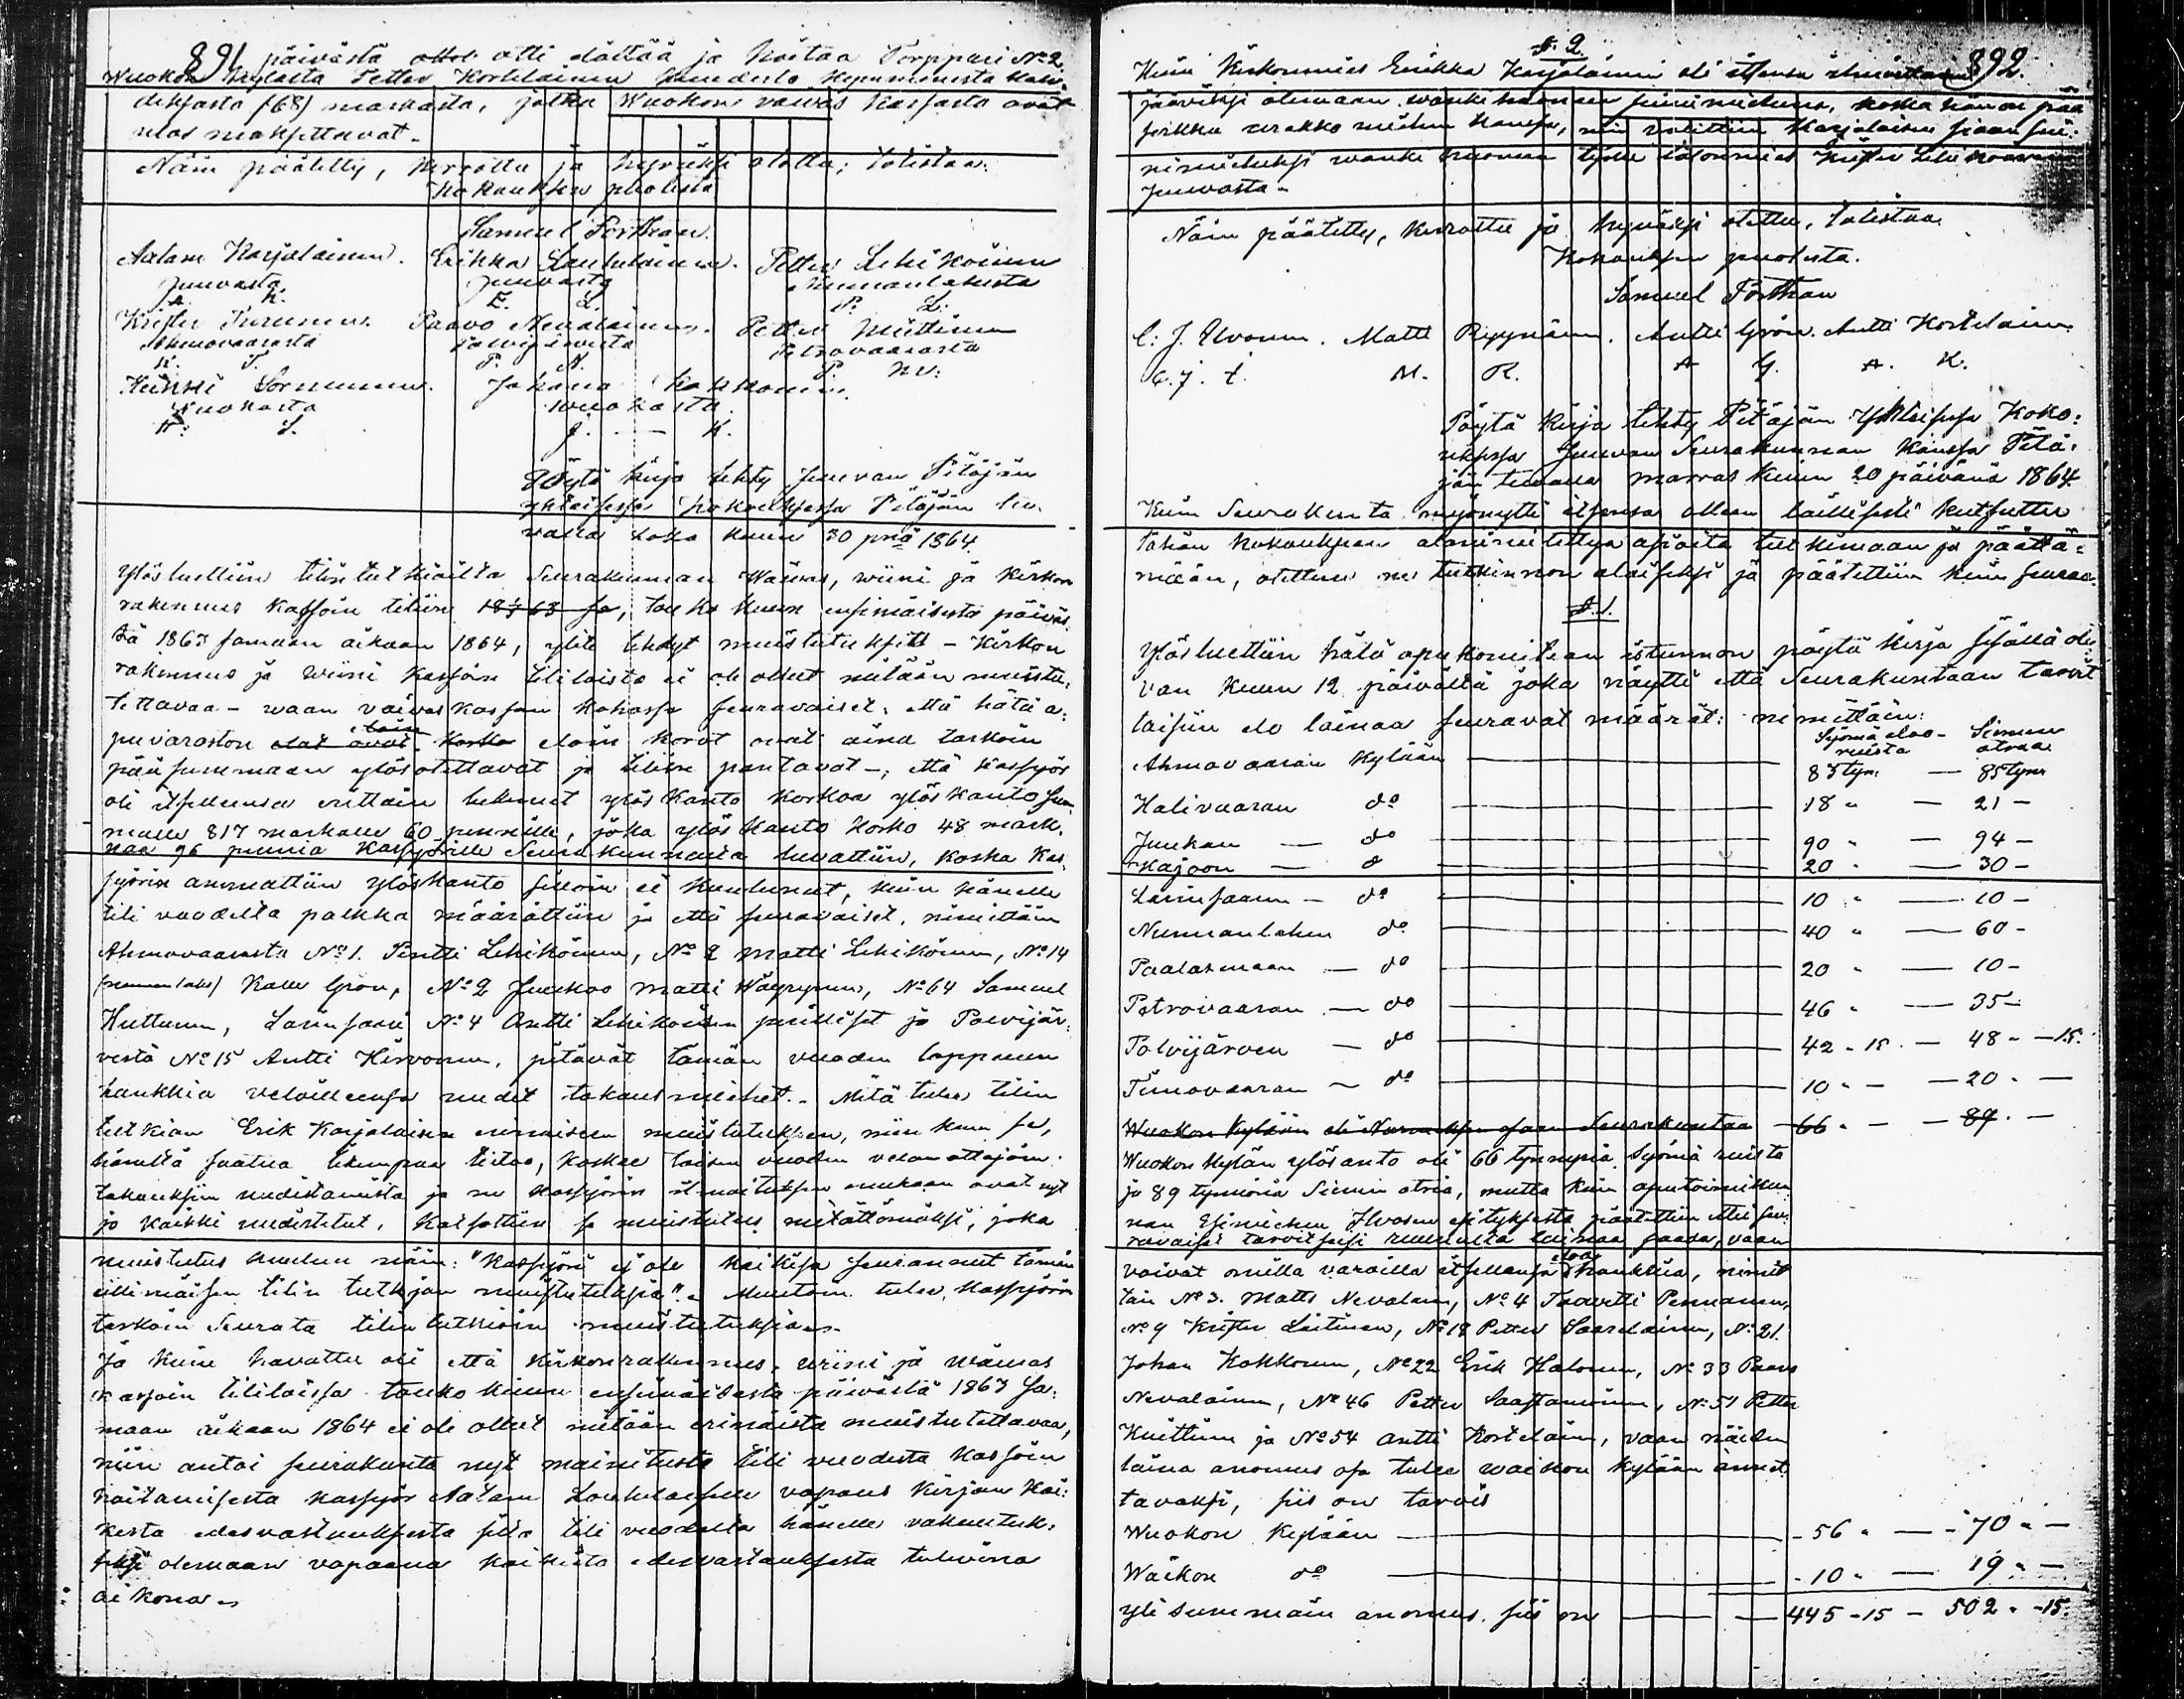 891 päivästä otti elättää ja hoitaa Torppari No 2
Wuokon kylästä Petter Kortelainen kuudesta kymmenestä kah-
deksasta (68) markasta, jotka Wuokon vaivas kassasta ovat
ulos maksettavat.
Näin päätetty, kerrottu ja hyväksi otettu; todistaa:
Kokouksen puolesta
Samuel Forthran.
Adam Karjalainen. Erikka Laukulainen. Petter Lehikoinen
Juuvasta. Juuvasta Nunnanlahesta
A. K. E. L. P. L.
Krister Turunen. Paavo Nevalainen. Petter Miettinen
Ahmovaarasta Polvijärvestä Petrovaarasta
K. T. P. N. P. M:
Heikki Sormunen. Johana Kokkonin.
Wuokosta Wuokosta.
H: S. J. - K.
Pöytä kirja tehty Juuvan Pitäjän
yhteisessä kokouksessa Pitäjän tu-
valla Loka kuun 30 pnä 1864.
Ylösluettiin tilintutkioilta Seurakunnan Waivas, wiini ja Kirkon
rakennus kassoin tiliin 1863 sa, touko kuun ensimäisestä päiväs
tä 1863 samaan aikaan 1864, ylite tehdyt muistutukset - Kirkon
rakennus ja wiini kassoin tililöistä ei ole ollut mitään muistu-
tettavaa - waan vaivas kassan kohassa seuravaiset: että hätä a-
puvaraston elot ovat koska eloin korot ovat aina tarkoin
pääsummaan ylösotettavat ja tiliin pantavat -; että kassyör
oli itsellensä erittäin lukenut ylös kanto korkoa ylös kanto sum
malle 817 markalle 60 pennille, joka ylös kanto korko 48 mark-
kaa 96 penniä Kassyörille Seurakunnasta luvattiin, koska kas-
syörin ammattiin ylöskanto silloin ei kuulunut, kuin hänelle
tili vuodelta palkka määrättiin ja että seuravaiset, nimittäin
Ahmovaarasta No 1. Pentti Lehikoinen, No 2 Matti Lehikoinen, No 14
(Nunnanlaks) Kalle Grön, No 2 Juukas Matti Wäyrynen, No 64 Samuel
Huttunen, Larinsaari No 4 Antti Lehikoisen perilliset ja Polvijär-
vestä No 15 Antti Hirvonen, pitävät tämän vuoden loppuun
hankkia veloillensa uudet takausmiehet. - Mitä tulee tilin
tutkian Erik Karjalaisen enimäiseen muistutukseen, niin kuin se,
häneltä saatua likempää tietoa, koskee toisen vuoden velan ottajoin
takauksiin uudistamista ja ne kassyörin ilmoituksen mukaan ovat nyt
jo kaikki uudistetut, katsottiin se muistutus mitättömäksi, joka
muistutus kuuluu näin: "Kassyöri ei ole kaikissa seurannut tämän
eillimäisen tilin tutkian muistutuksia". Muutoin tulee kassyörin
tarkoin Seurata tilin tutkioin muistutuksia.
Ja kuin havattu oli että kirkonrakennus- wiini ja waivas
kassoin tililöissä touko kuun ensimäisestä päivästä 1863 sa-
maan aikaan 1864 ei ole ollut mitään erinäistä muistutettavaa,
niin antoi seurakunta nyt mainitusta tili vuodesta kassoin
hoitamisesta kassyör Adam Loukulaiselle vapaus kirjan kai-
kesta edesvastauksesta siltä tili vuodelta hänelle vakuutuk-
seksi olemaan vapaana kaikista edesvastauksesta tulevina
aikona.
892.
§. 2.
Kuin Kirkonmies Erikka Karjalainen oli itsensä ilmoittanut
jääviksi olemaan wankihuoneen sinimiehenä, koska hän on pää
seikka urakko miehen kanssa, niin valittiin Karjalaisen siaan sini-
nimieheksi wanki huoneen työlle talonmies Krister Lehikoinen
Juuvasta.
Näin päätetty, kerrottu ja hyväksi otettu, todistaa
Kokouksen puolesta.
Samuel Forthran
C: J. Ilvonen. Matti Ryynänen. Antti Grön. Antti Kortelainen
C. J. I. M. R. A G. A. K.
Pöytä kirja tehty Pitäjän Yhteisessä Koko-
uksessa Juuvan Seurakunnan kanssa Pitä-
jän tuvalla marras kuun 20 päivänä 1864.
Kuin Seurakunta myönnytti itsensä olleen laillisesti kutsuttu
tähän kokoukseen alanimitettyä asioita tutkimaan ja päättä-
mään, otettiin ne tutkinnon alaiseksi ja päätettiin kuin seuraa.
§. 1.
Ylösluettiin hätä apu komitean istunnon pöytä kirja sisällä ole-
van kuun 12 päivältä joka näytti että Seurakuntaan tarvit
taisiin elo lainaa seuravat määrät: nimittäin:
Syömä eloo- Siemen
ruista otraa
Ahmovaaran kylään 85 tyn. — 85 tynr
Halivaaran do 18 " — 21 -
Juukan — do 90 " — 94 -
Kajoon — d 20 " — 30 -
Larinsaaren — do 10 " — 10 -
Nunnanlahen do 40 " — 60 -
Paalasmaan — do 20 " — 10 -
Petrovaaran — do 46 " — 35 -
Polvijärven — do 42 - 15 — 48 " - 15.
Timovaaran — do 10 " - — 20 " —
Wuokon kylään eli Seurakuntaa 66 " - — 89 " —
Wuokon kylän ylösanto oli 66 tynnyriä Syömä ruista
ja 89 tynnöriä Siemen otria, mutta kuin aputoimikun
nan Esimiehen Ilvosen esityksestä päätettiin ettei seu-
ravaiset tarvitseisi ruunulta lainaa saada, vaan
voivat omilla varoilla itsellensä eloa hankkia, nimit
täin No 3. Matts Nevalain, No 4 Taavetti Pennanen,
No 9 Krister Laitinen, No 18 Petter Saarelainen, No 21.
Johan Kokkonen, No 22 Erik Halonen, No 33 Paavo
Nevalainen, No 46 Petter Saastamoinen, No 51 Petter
Kuittinen ja No 54 Antti Kortelain, vaan näiden
laina anomus osa tulee waikon kylään annet
tavaksi, siis on tarvis
Wuokon kylään - 56 " — - 70 " —
Waikon do - 10 " — 19 " —
yli summain anomus siis on 445 - 15 - 502 " - 15.